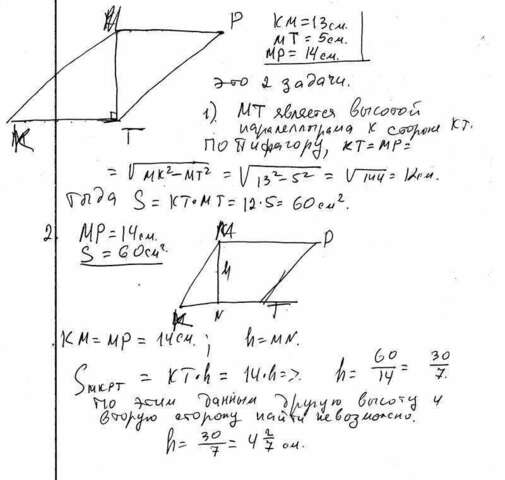 M P
KM = 13 см.
MT = 5 см.
MP = 14 см.
K T
это 2 задачи.
1). MT является высотой
параллелограма к стороне KT.
По Пифагору, KT = MP =
= √MK² - MT² = √13² - 5² = √144 = 12 см.
тогда S = KT · MT = 12 · 5 = 60 см².
2. MP = 14 см.
S = 60 см².
M P
h
K N T
KM = MP = 14 см ; h = MN.
S MKPT = KT · h = 14 · h => h = 60/14 = 30/7
по этим данным другую высоту и
вторую сторону найти невозможно.
h = 30/7 = 4 2/7 см.